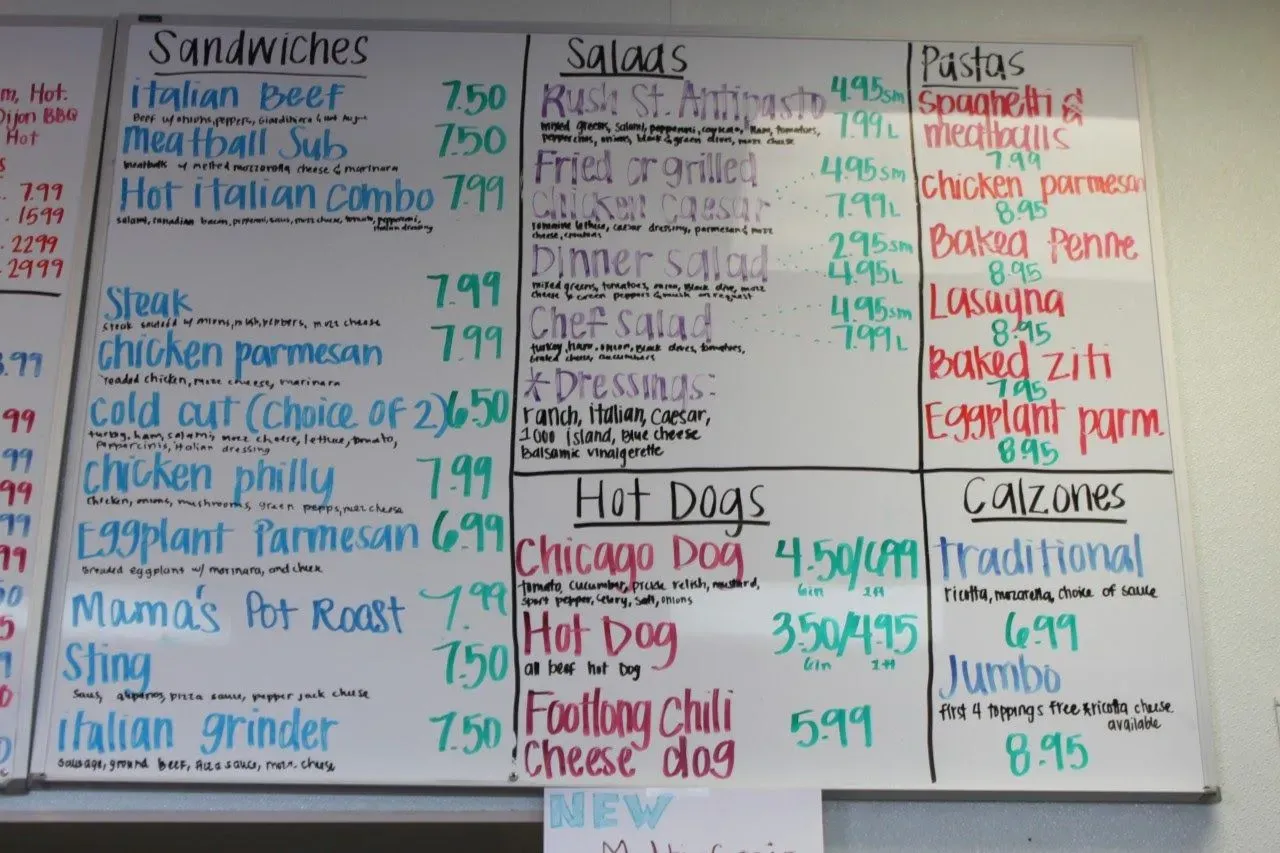 m, Hot.
Dijon BBQ
Hot
7.99
1599
2299
2999
.99
99
99
99
99
99
Sandwiches
italian Beef 7.50
Beef w/ onions, peppers, Giardinara & hot
Meatball Sub 7.50
meatballs w/ melted mozzorella cheese & marinara
Hot italian combo 7.99
salami, canadian bacon, pepperoni, saus, mozz cheese, tomato, pepperoncini,
italian dressing
Steak 7.99
steak sauteed w/ mozz cheese
chicken parmesan 7.99
readed chicken, mozz cheese, marinara
cold cut (choice of 2) 6.50
turkey, ham, salami, mozz cheese, lettuce, tomato,
pepperoncinis, italian dressing
chicken philly 7.99
chicken, onions, mushrooms, green pepps, mozz cheese
Eggplant Parmesan 6.99
Breaded eggplant w/ marinara, and cheese
Mama's Pot Roast 7.99
Sting 7.50
Saus, pizza sauce, pepper jack cheese
italian grinder 7.50
Sausage, ground BEEF, Pizza sauce, mozz. cheese
Salads
Rush St. Antipasto 4.95sm
7.99L
mixed greens, salami, pepperoni, ham, tomatoes,
onions, black & green olives, mozz cheese
Fried or grilled 4.95sm
Chicken caesar 7.99L
romaine lettuce, caesar dressing, parmesan & mozz
cheese, croutons
Dinner salad 2.95sm
4.95L
mixed greens, tomatoes, onion, Black olive, mozz
cheese & Green peppers & mush on request
Chef salad 4.95sm
7.99L
turkey, ham, onion, Black olives, tomatoes,
cheese, cucumbers
*Dressings:
ranch, italian, Caesar,
1000 island, Blue cheese
Balsamic vinaigerette
Hot Dogs
Chicago Dog 4.50/6.99
6in 1ft
tomato, cucumber, pickle relish, mustard,
sport pepper, celery, salt, onions
Hot Dog 3.50/4.95
6in 1ft
all beef hot Dog
Footlong Chili
Cheese dog 5.99
Pastas
spaghetti &
meatballs
7.99
chicken parmesan
8.95
Baked Penne
8.95
Lasagna
8.95
Baked ziti
7.95
Eggplant parm.
8.95
Calzones
traditional
ricotta, mozarella, choice of sauce
6.99
Jumbo
first 4 toppings free *ricotta cheese
available
8.95
NEW